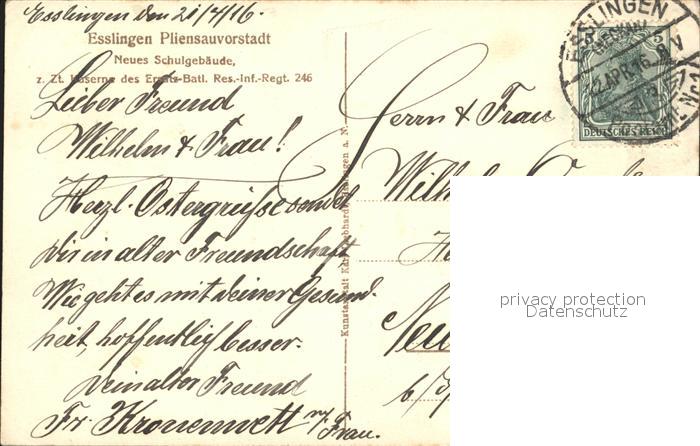 Esslingen den 21/4/16.
Esslingen Pliensauvorstadt
Neues Schulgebäude,
z. Zt. Kaserne des Ersatz-Batl. Res.-Inf.-Regt. 246
Lieber Freund
Wilhelm & Frau!
Herzl. Ostergrüsse sendet
Dir in alter Freundschaft
Wie geht es mit deiner Gesund-
heit, hoffentlich besser.
Dein alter Freund
Fr. Kronenwett u/ Frau.
Kunstanstalt Karl Gebhardt, Esslingen a. N.
Herrn & Frau
ESSLINGEN
(NECKAR)
DEUTSCHES REICH
privacy protection
Datenschutz